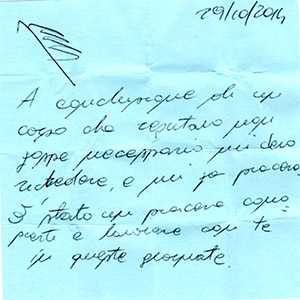 29/10/2014
A conclusione di un
corso che reputavo non
fosse necessario mi devo
ricredere, e mi fa piacere,
È stato un piacere cono
scerti e lavorare con te
in queste giornate.